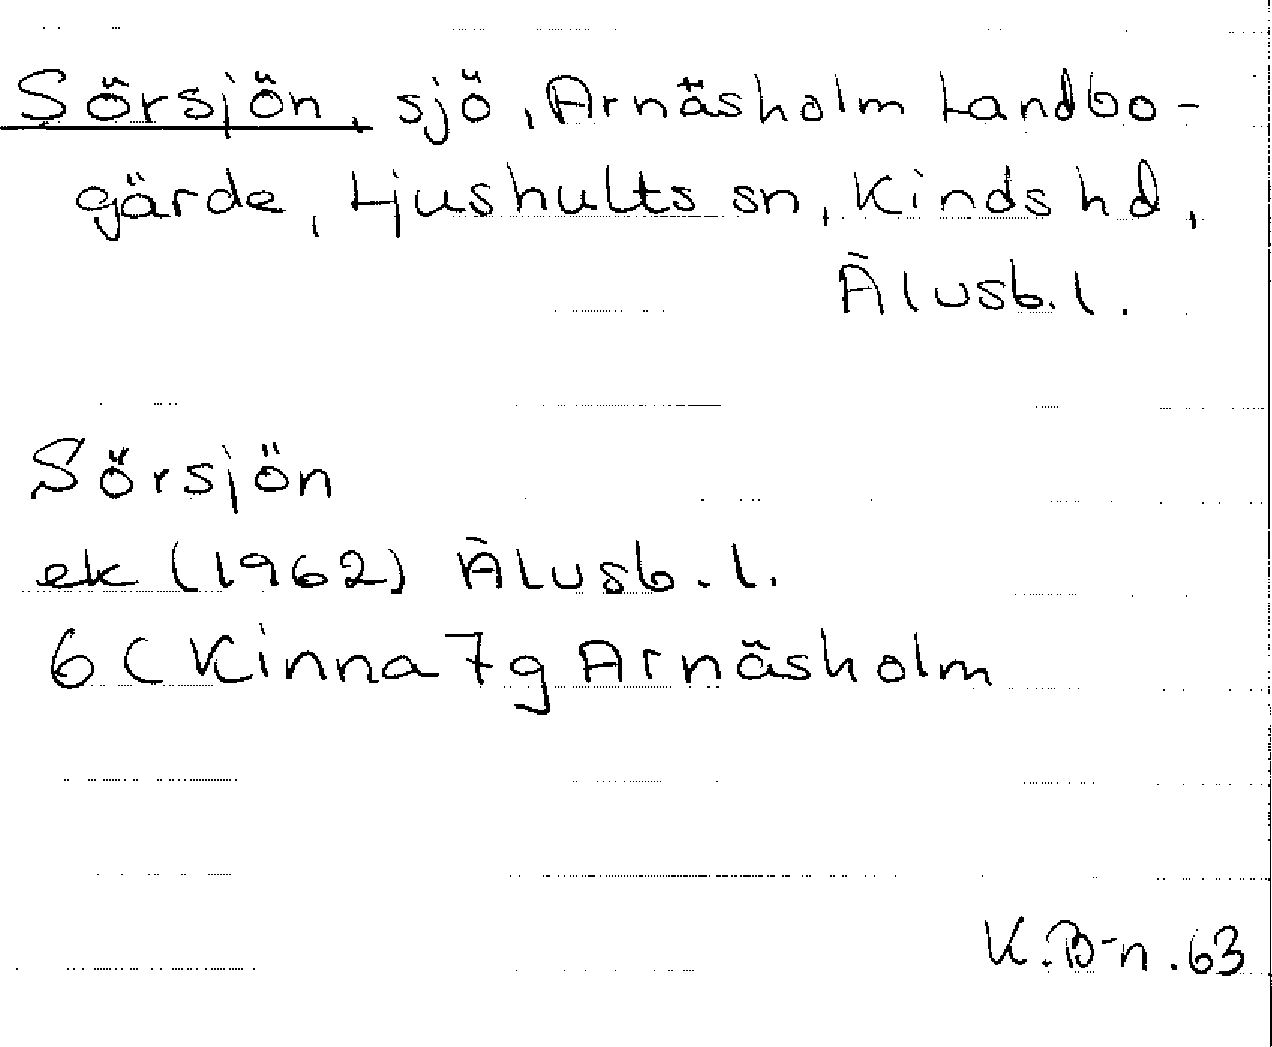 Sörsjön, sjö, Arnäsholm Landbo-
gärde, Ljushults sn, Kinds hd,
Älvsb. l.
Sörsjön
ek (1962) Älvsb. l.
6 C Kinna 7g Arnäsholm
K. B-n. 63